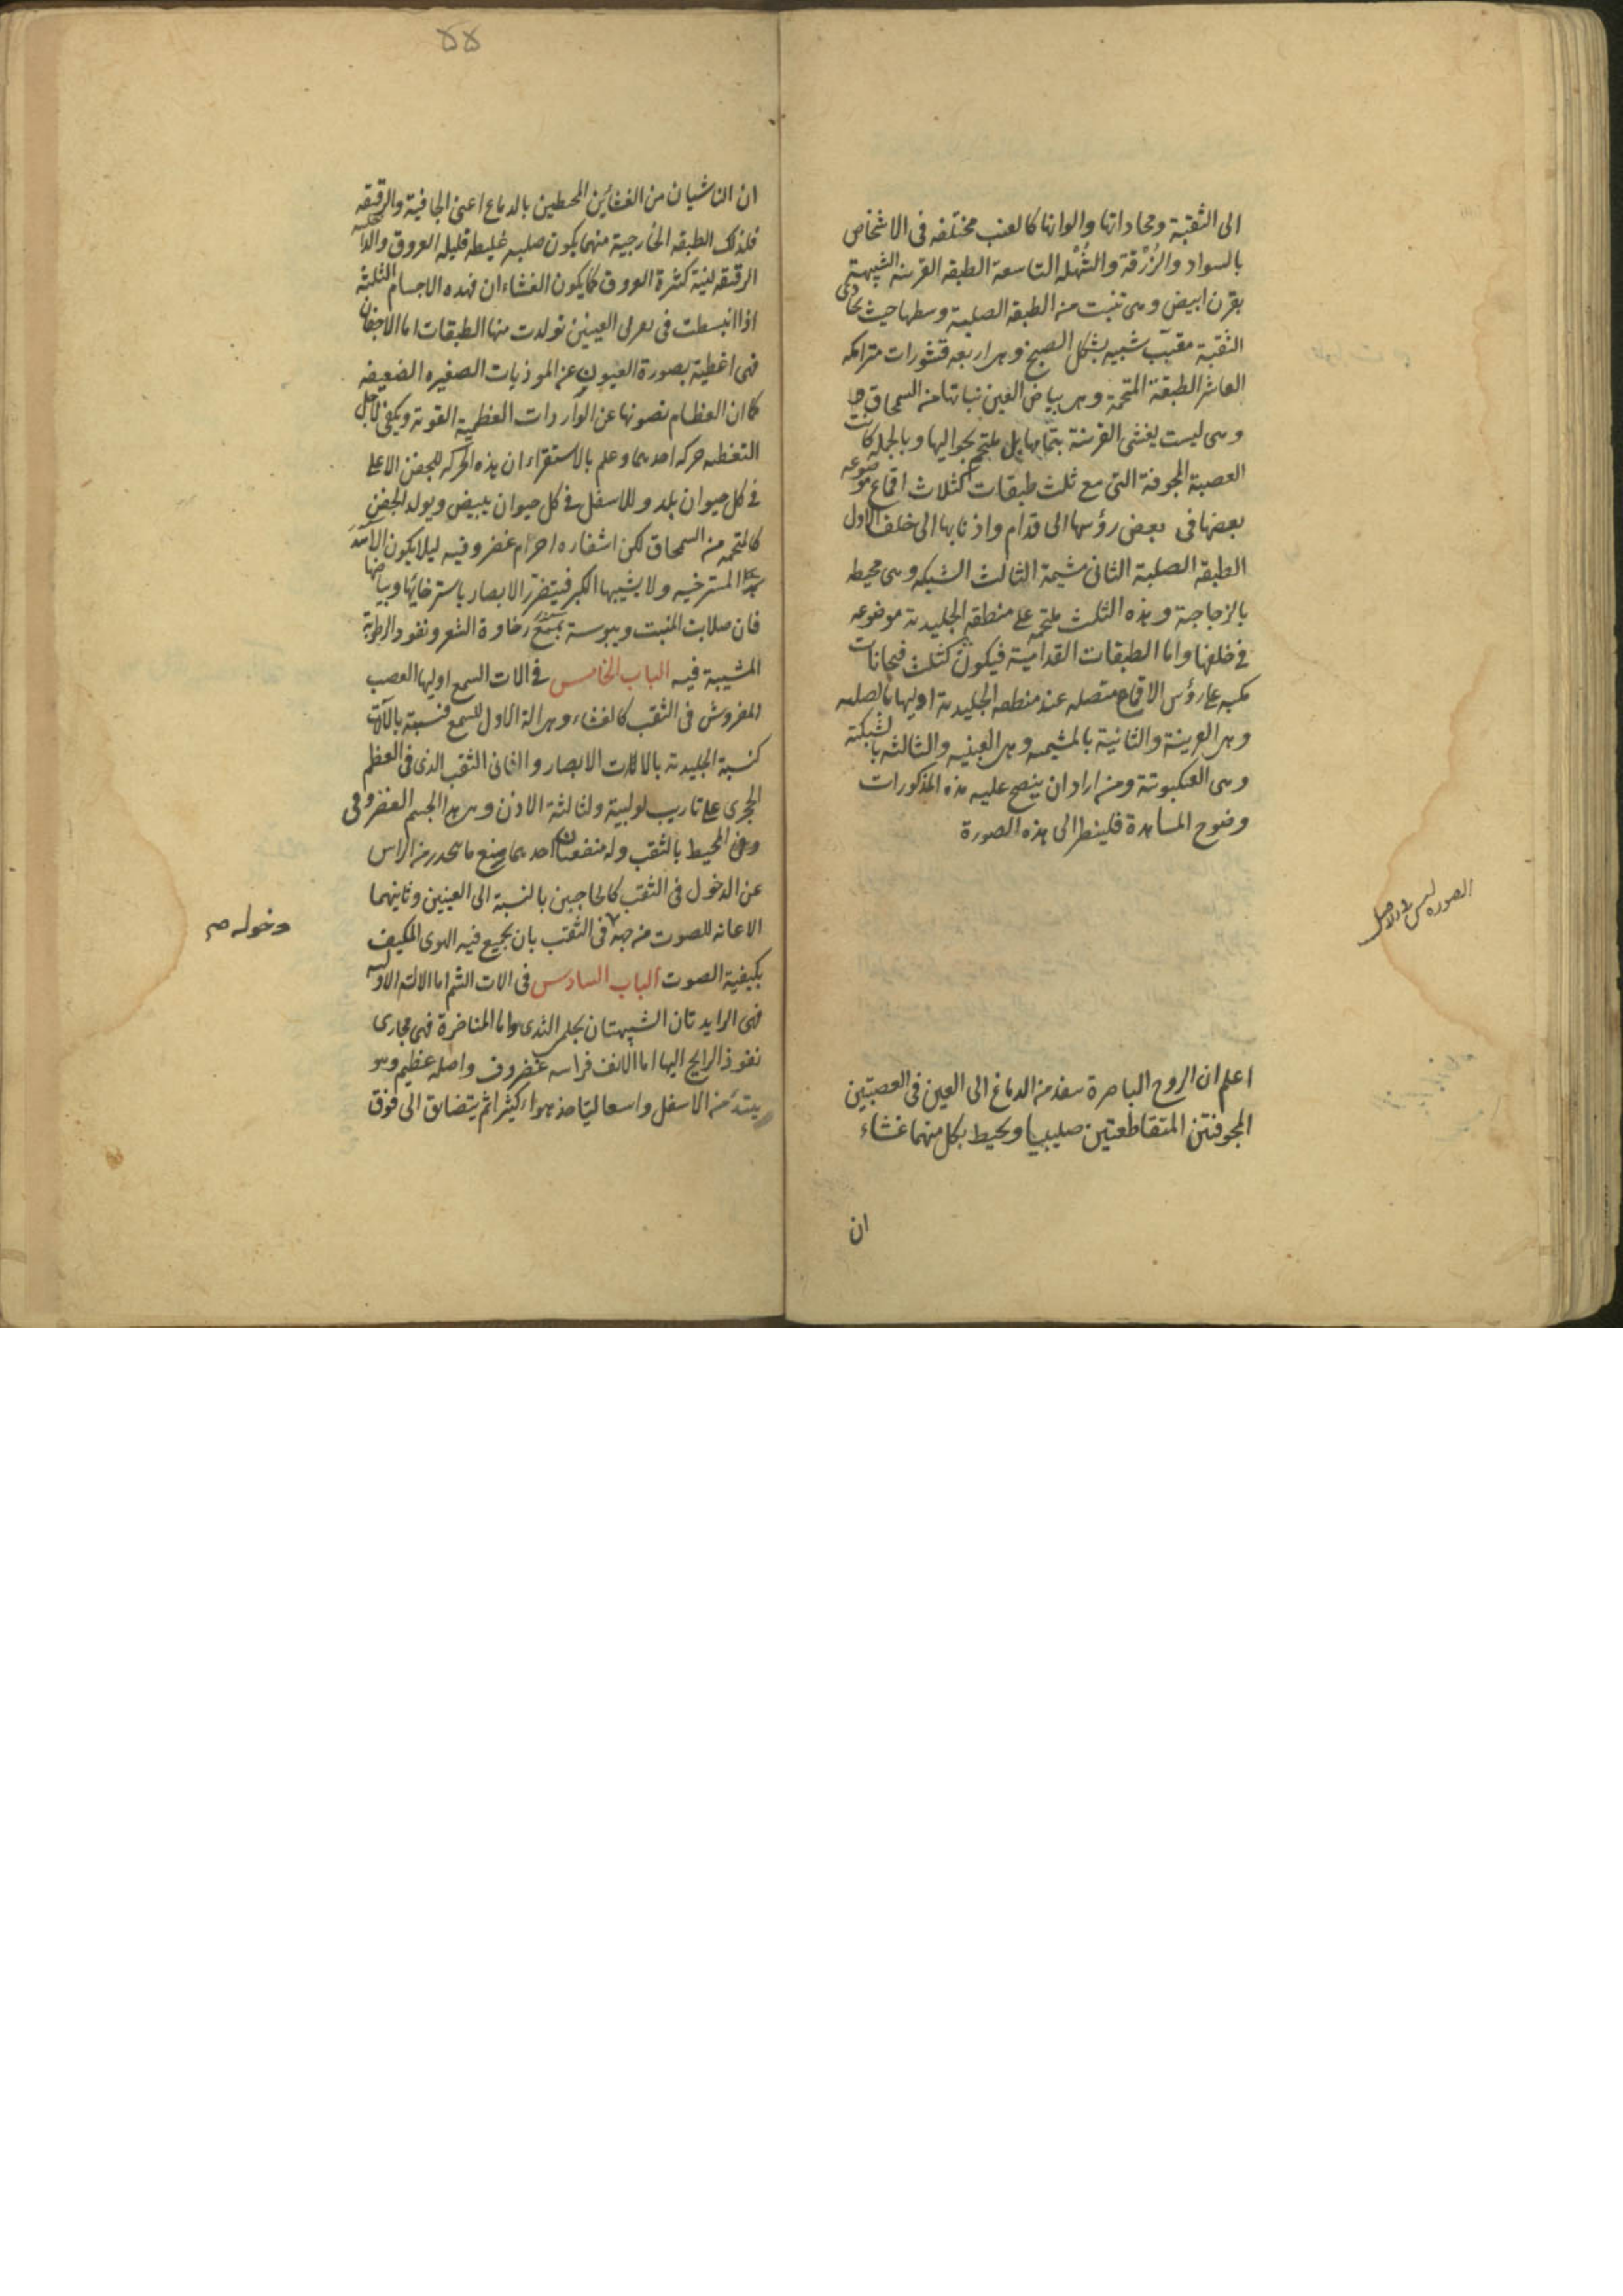 الى الثقبة ومحاداتها والوانها كالعنب مختلفه فى الاشخاص
بالسواد والزُرْقة والشُهْله التاسعة الطبقه القرنيه الشبيهة
بقرن ابيض وهى تنبت من الطبقه الصلبية وسطها حيث تحاذى
الثقبة مقبّب شبيه بشكل الصبح وهى اربعه قشورات متراكمه
العاشر الطبقة الملتحمة وهى بياض العين نباتها من السمحاق
وهى ليست يغشى القرنية بتمامها بل يلتحم بحواليها وبالجملة كانت
العصبة المجوفة التى مع ثلث طبقات كثلاث اقماع موضوعه
بعضها فى بعض رؤسها الى قدام واذنابها الى خلف الاول
الطبقه الصلبة الثانى مشيمة الثالث الشبكه وهى محيط
بالزجاجية وهذه الثلث ملتحمه على منطقه الجليدية موضوعه
فى خلفها واما الطبقات القدامية فيكون كثلث فنجانات
مكبه على رؤس الاقماع متصله عند منطقه الجليدية اوليها بالصلبه
وهى القرنية والثانية بالمشيمه وهى العنبيه والثالثه بالشبكية
وهى العنكبوتية ومن اراد ان يتضح عليه هذه المذكورات
وضوح المشاهدة فلينظر الى هذه الصورة
الصوره ليس فى الاصل
اعلم ان الروح الباصرة ينفذ من الدماغ الى العين فى العصبتين
المجوفتين المتقاطعتين صليبيا ويحيط بكل منهما غشاء
ان
٥٥
ان الناشيان من الغشائين المحيطين بالدماع اعنى الجافية والرقيقه
فلذلك الطبقه الخارجية منهما يكون صلبه غليظه قليله العروق والداخله
الرقيقه لينة كثيرة العروق كما يكون الغشاءان فهذه الاجسام الثلثه
اذا انبسطت فى نقرتى العينين تولدت منها الطبقات اما الاجفان
فهى اغطية بصورة العيون عن الموذيات الصغيره الضعيفه
كما ان العظام تصونها عن الواردات العظيمة القوية ويكفى لاجل
التغطيه حركه احديهما وعلم بالاستقراء ان هذه الحركه للجفن الاعلى
فى كل حيوان يلد وللاسفل فى كل حيوان يبيض ويولد الجفن
كالملتحمه من السمحاق لكن اشفاره اجرام غضروفيه ليلا يكون
المسترخيه ولا يشيبها الكبر فيتضرر الابصار باسترخائها وبياضها
فان صلابت المنبت ويبوسته يمنع رخاوة الشعر ونفوذ الرطوبة
المشيبة فيه الباب الخامس فى الات السمع اوليها العصب
المفروش فى الثقب كالغشاء وهى الة الاول للسمع فنسبته بالآلات
كنسبة الجليدية بالات الابصار والثانى الثقب الذى فى العظم
الحجرى على تاريب لولبية والثالثة الاذن وهى هذا الجسم الغضروفى
المحيط بالثقب وله منفعتان احديهما منع ما ينحدر من الراس
عن الدخول فى الثقب كالحاجبين بالنسبة الى العينين وثانيهما
الاعانه للصوت من جهة فى الثقب بان يجمع فيه الهوى المكيف
دخوله صح
بكيفية الصوت الباب السادس فى الات الشم اما الالة الاوليه
فهى الزايدتان الشبيهتان بحلمتى الثدى واما المناخرة فهى مجارى
نفوذ الرايح اليها اما الانف فراسه غضروف واصله عظيم وهو
يبتدئ من الاسفل واسعا ليتاخذ هواء كثيرا ثم يتضايق الى فوق